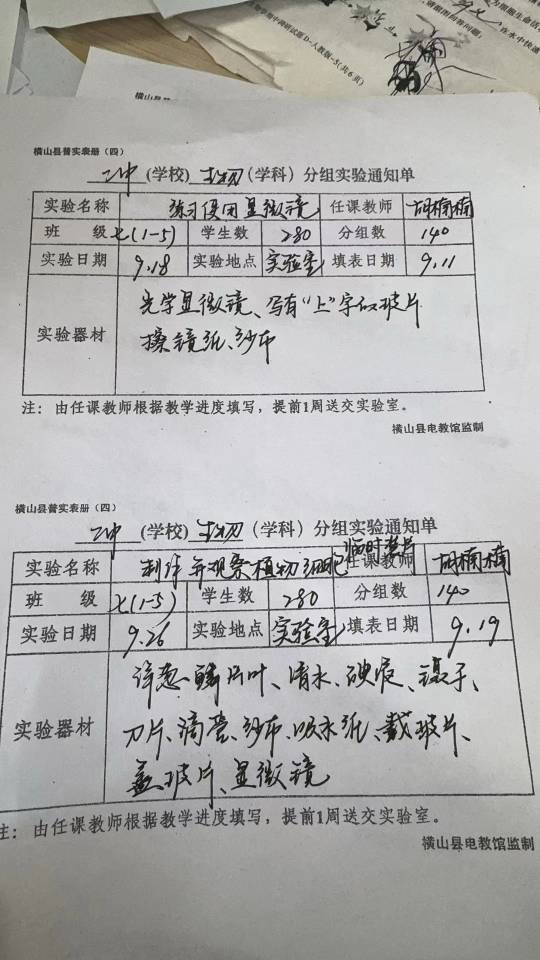 为根瘤生命活
在水中快速
请据图回答问题:
物学期中调研试题D-人教版-5(共6页)
横山县普
横山县普实表册(四)
二中(学校)生物(学科)分组实验通知单
实验名称 练习使用显微镜 任课教师 胡楠楠
班 级 七(1-5) 学生数 280 分组数 140
实验日期 9.18 实验地点 实验室 填表日期 9.11
实验器材 光学显微镜、写有“上”字的玻片
擦镜纸、纱布
注:由任课教师根据教学进度填写,提前1周送交实验室。
横山县电教馆监制
横山县普实表册(四)
二中(学校)生物(学科)分组实验通知单
实验名称 制作并观察植物细胞临时装片 任课教师 胡楠楠
班 级 七(1-5) 学生数 280 分组数 140
实验日期 9.26 实验地点 实验室 填表日期 9.19
实验器材 洋葱鳞片叶、清水、碘液、镊子、
刀片、滴管、纱布、吸水纸、载玻片、
盖玻片、显微镜
注:由任课教师根据教学进度填写,提前1周送交实验室。
横山县电教馆监制